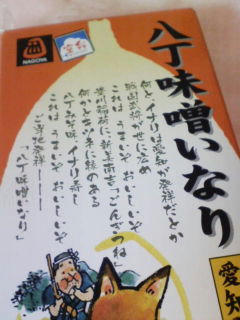 NAGOYA
八丁味噌いなり
何とイナリは愛知が発祥だとか
戦国武将が世に広め
これは うまいぞ おいしいぞ
豊川稲荷に、新美南吉「ごんぎつね」
何かときツネに縁のある
八丁みそ味 イナリ寿し
これは うまいぞ おいしいぞ
ご当地発祥ーーー
「八丁味噌いなり」
愛知